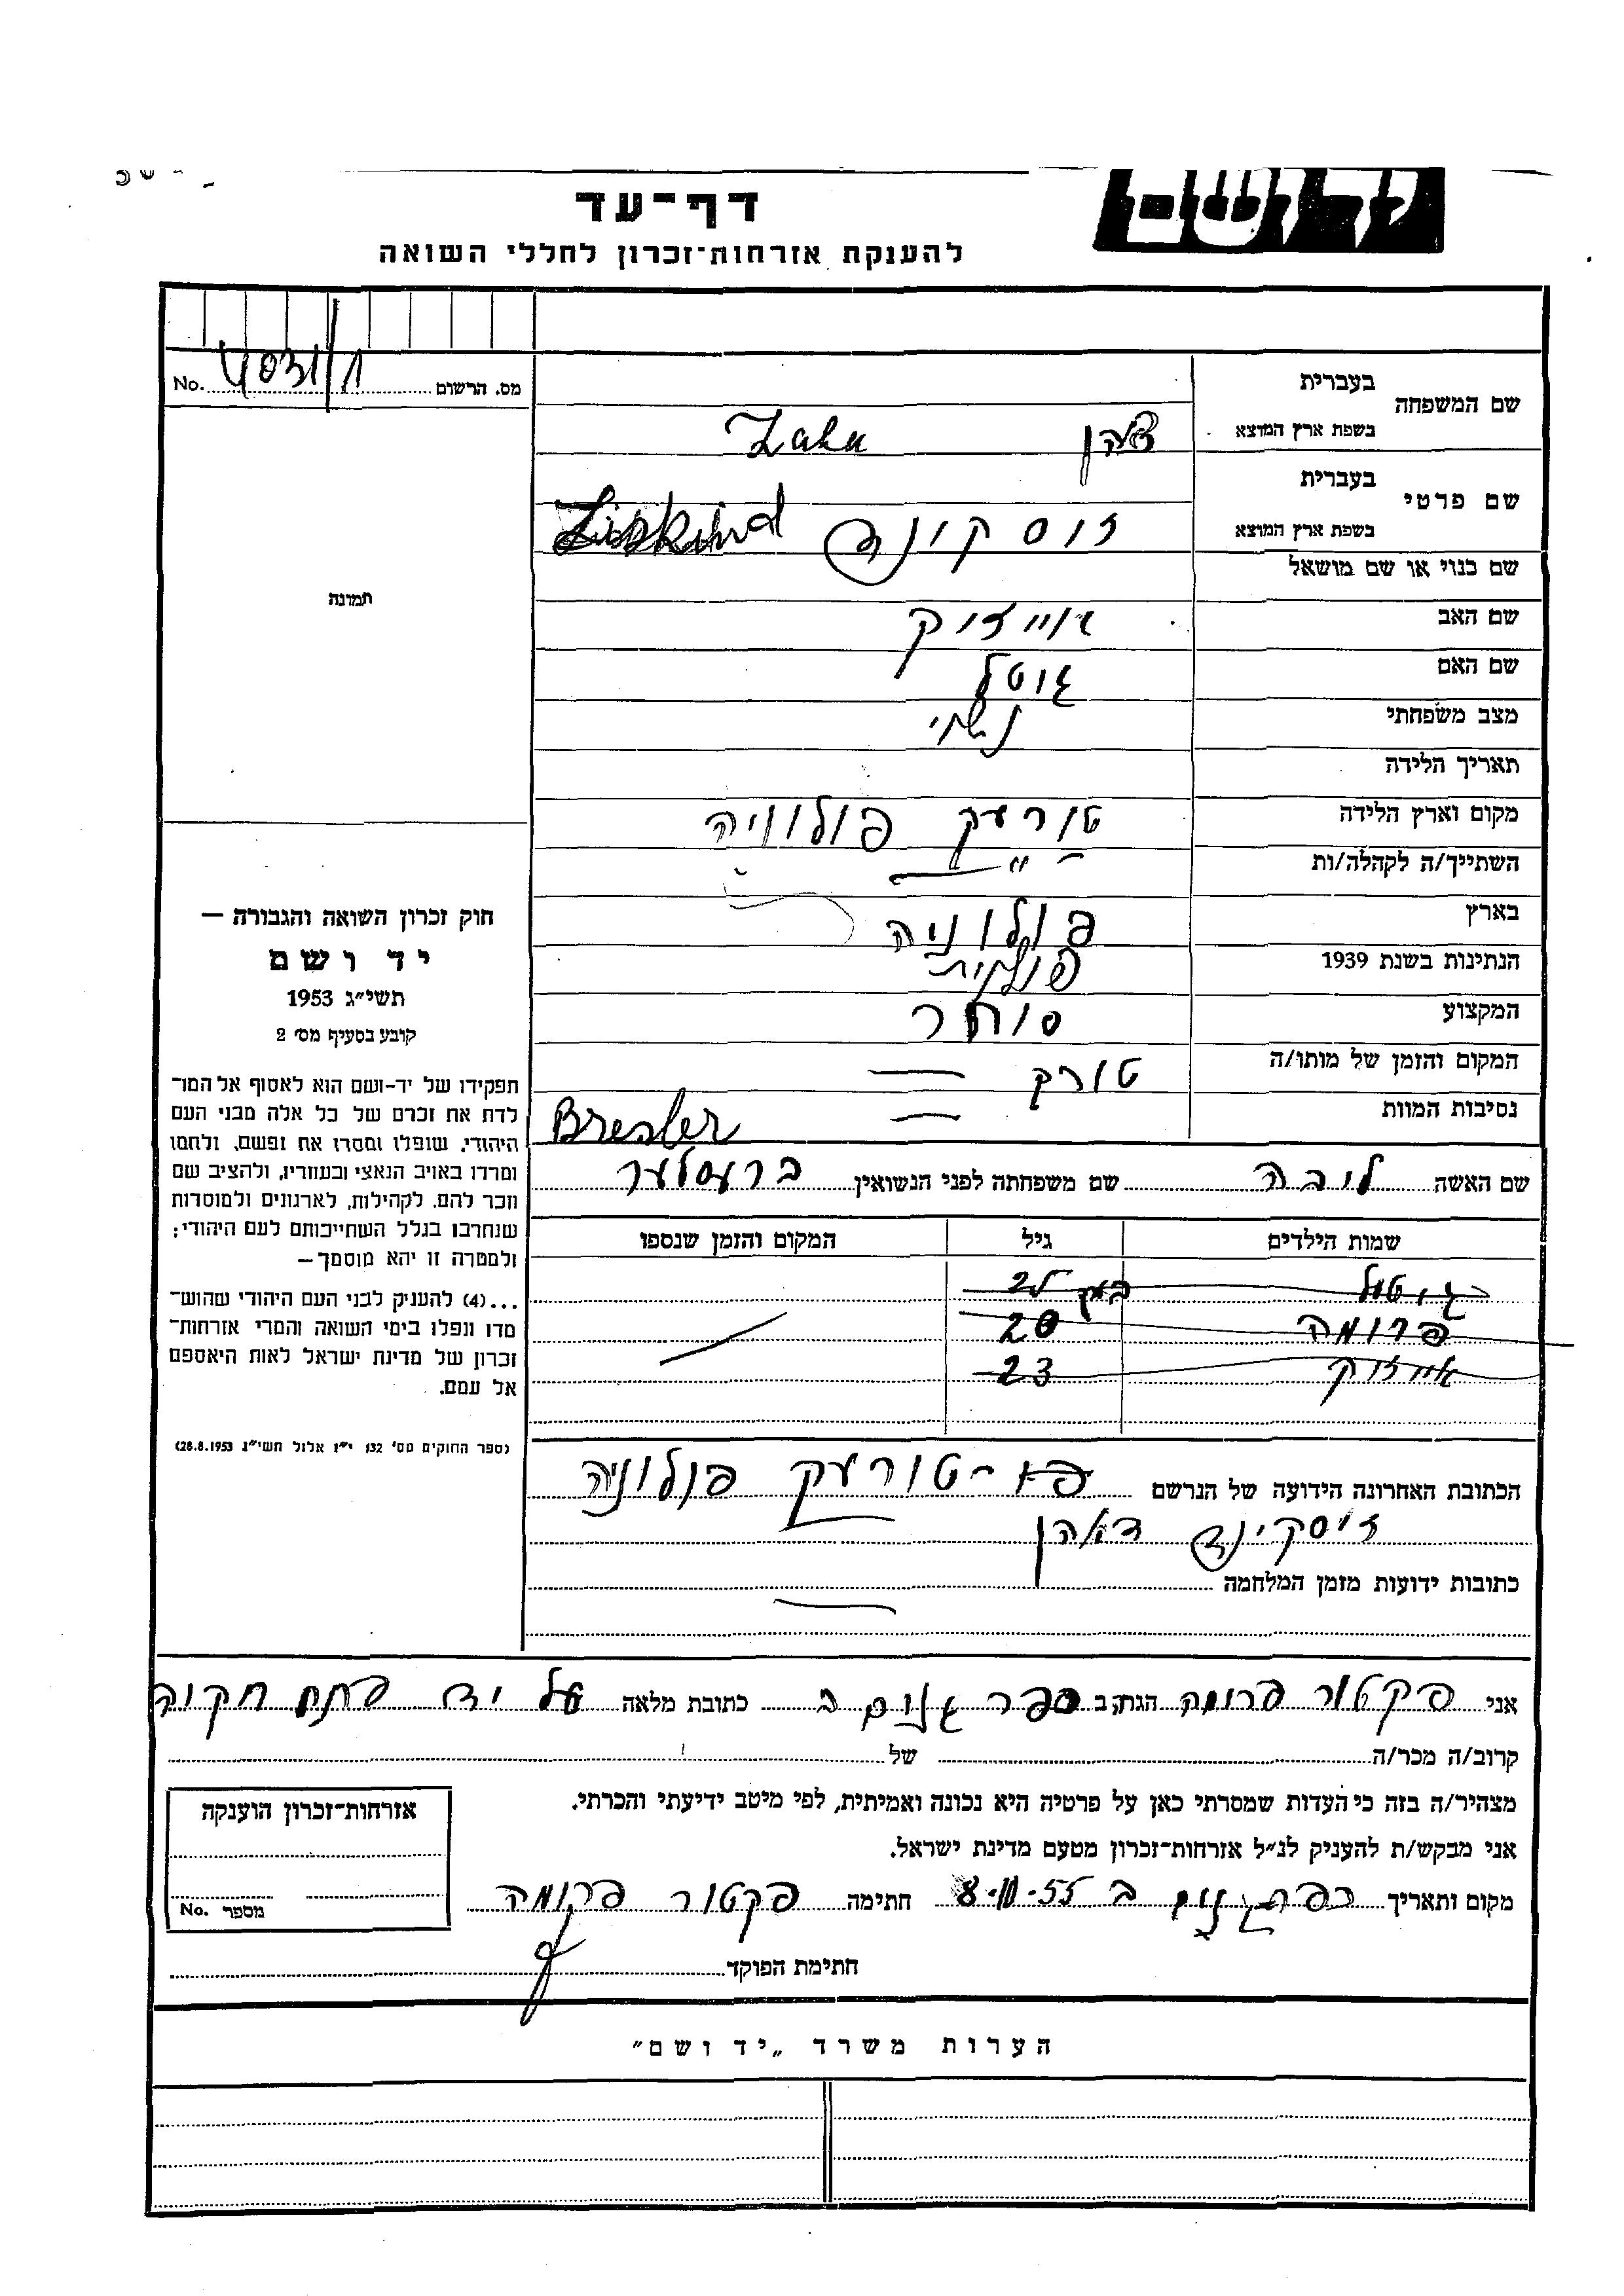 יד ושם
דף־עד
להענקת אזרחות־זכרון לחללי השואה
מס. הרשום No.
שם המשפחה בעברית
בשפת ארץ המוצא Zahn
שם פרטי בעברית
בשפת ארץ המוצא זוסקינד Ziskind
שם כנוי או שם מושאל
שם האב אייזיק
שם האם גוטל
מצב משפחתי נשוי
תאריך הלידה
מקום וארץ הלידה טורעק פולוניה
השתייך/ה לקהלה/ות — " —
בארץ פולוניה
הנתינות בשנת 1939 פולנית
המקצוע סוחר
המקום והזמן של מותו/ה טורק —
נסיבות המוות — Bresler
שם האשה ליבה שם משפחתה לפני הנשואין ברעסלער
שמות הילדים גיל המקום והזמן שנספו
גוטל 25
פרומה 20
אייזיק 23
הכתובת האחרונה הידועה של הנרשם טורעק פולוניה
זיסקינד צאהן
כתובות ידועות מזמן המלחמה —
תמונה
חוק זכרון השואה והגבורה —
יד ושם
תשי״ג 1953
קובע בסעיף מס׳ 2
תפקידו של יד-ושם הוא לאסוף אל המו־
לדת את זכרם של כל אלה מבני העם
היהודי, שנפלו ומסרו את נפשם, ולחמו
ומרדו באויב הנאצי ובעוזריו, ולהציב שם
וזכר להם, לקהילות, לארגונים ולמוסדות
שנחרבו בגלל השתייכותם לעם היהודי;
ולמטרה זו יהא מוסמך —
...(4) להענק לבני העם היהודי שהוש־
מדו ונפלו בימי השואה והמרי אזרחות־
זכרון של מדינת ישראל לאות היאספם
אל עמם.
(ספר החוקים מס׳ 132 י״ז אלול תשי״ג 28.8.1953)
אני פקטור פרומה הגר/ה ב כפר גנים ב כתובת מלאה על יד פתח תקוה
קרוב/ה מכר/ה של
מצהיר/ה בזה כי העדות שמסרתי כאן על פרטיה היא נכונה ואמיתית, לפי מיטב ידיעתי והכרתי.
אני מבקש/ת להעניק לנ״ל אזרחות־זכרון מטעם מדינת ישראל.
מקום ותאריך כפר גנים ב 8-10-55 חתימה פקטור פרומה
חתימת הפוקד
אזרחות־זכרון הוענקה
מספר No.
הערות משרד „יד ושם״